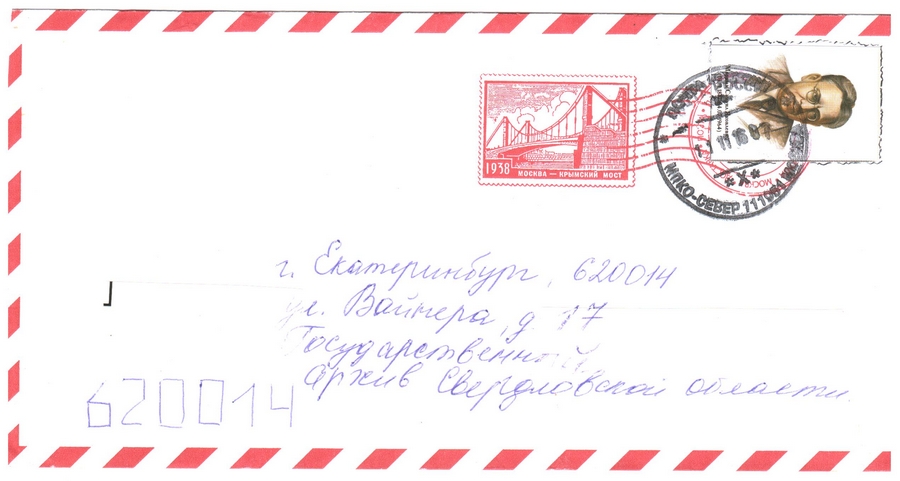 1938
МОСКВА — КРЫМСКИЙ МОСТ
МОСКВА РОССИЯ
МПКО-СЕВЕР 111981
г. Екатеринбург, 620014
ул. Вайнера, д. 17
Государственный
архив Свердловской области
620014